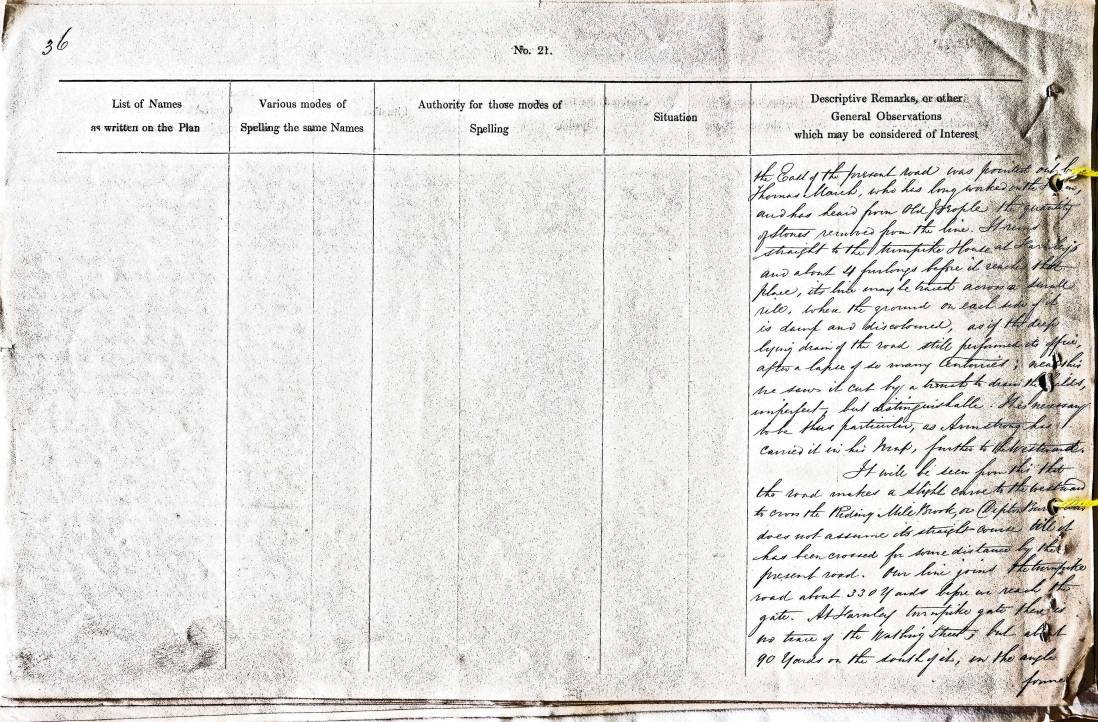 36
No. 21.
List of Names
as written on the Plan
Various modes of
Spelling the same Names
Authority for those modes of
Spelling
Situation
Descriptive Remarks, or other
General Observations
which may be considered of Interest
the East of the present road was pointed out by
Thomas March, who has long worked on the
and has heard from Old People the quantity
of Stones removed from the line. It runs
straight to the turnpike House at Harnleys
and about 4 furlongs before it reaches that
place, its line may be traced across a small
rile, when the ground on each side of it
is damp and discoloured, as if the deep
lying drain of the road still performed its office,
after a lapse of so many Centuries; near this
he saw it cut by a trench to drain the fields,
imperfect, but distinguishable. It is necessary
to be thus particular, as Armstrong has
carried it in his Map, further to the Westward.
It will be seen from this that
the road makes a slight curve to the westward
to cross the Riding Mile Brook, or Dipton Burn
does not assume its straight course till it
has been crossed for some distance by the
present road. Our line joins the turnpike
road about 330 Yards before we reach the
gate. At Harnley turnpike gate there is
no trace of the Watling Street, but about
90 Yards on the south of it, in the angle
forme